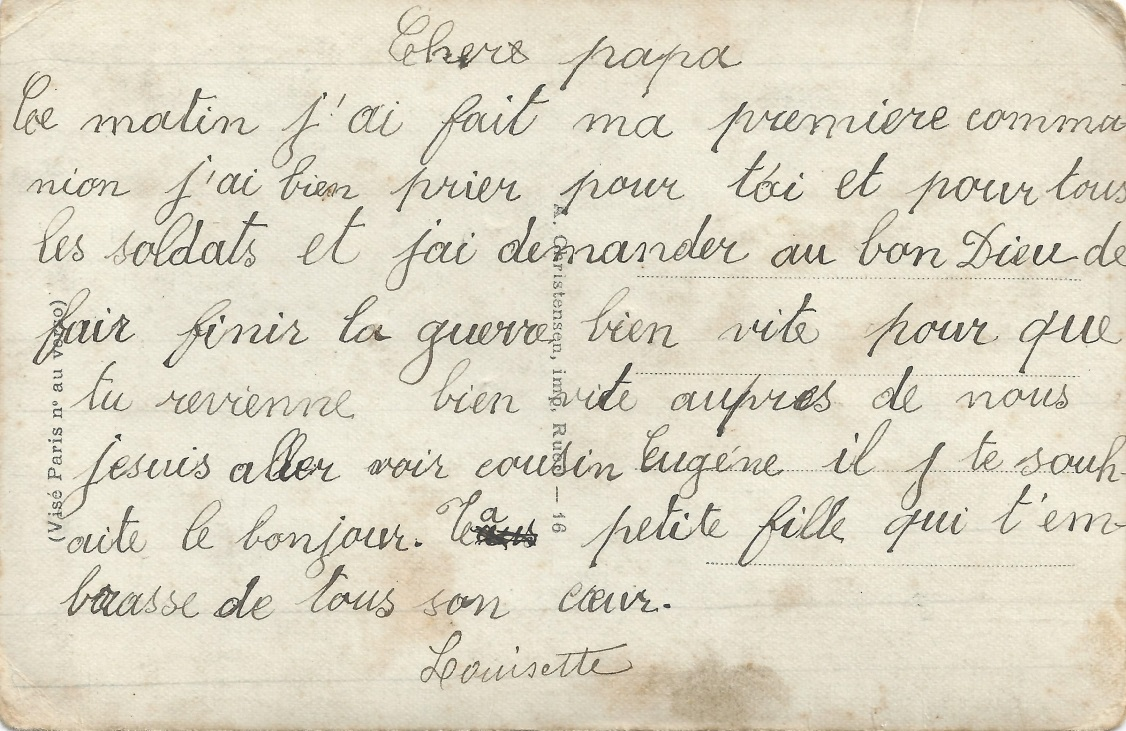 Chere papa
Ce matin j'ai fait ma premiere commu-
nion j'ai bien prier pour toi et pour tous
les soldats et j'ai demander au bon Dieu de
fair finir la guerre bien vite pour que
tu revienne bien vite aupres de nous
jesuis aller voir cousin Eugéne il te souh-
aite le bonjour. Ta petite fille qui t'em-
brasse de tous son cœur.
Louisette
(Visé Paris n° au verso)
A. Christensen, imp. Rubé — 16